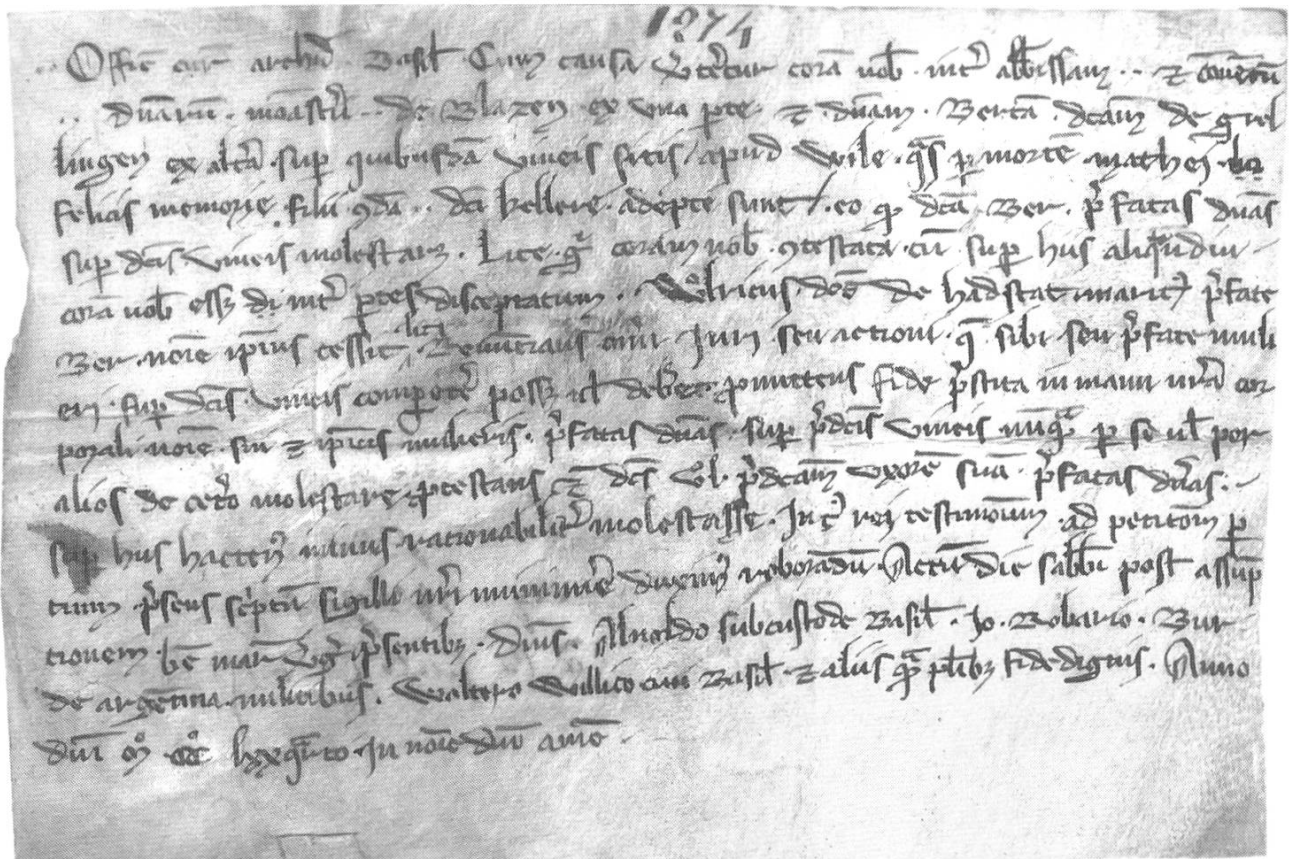 1274
.. Offic̄ cur̄ archid̄ . Basil̄ . Cum causa v̄teretur corā nob̄ . int̄ abb̄issam .. ⁊ cōuētū
.. dn̄arū . mōasterii .. de Blazen ex vna pte . ⁊ dn̄am . Bertā . dc̄am de Grel
lingen ex altā . sup quibusdā vineis sitis . apud Wile . qᵃs p mortē mathei
felicis memorie . filii ꝯdā .. dc̄i hellere . adepte sunt . eo qꝫ dc̄a . Ber . p̄fatas dn̄as
sup dc̄is vineis molestaret . Lite . gͦ coram nob̄ . ꝯtestata . cū sup hiis aliqᵃndiu
corā nob̄ essꝫ int̄ ptes disceptatum . Vͦlricus . dc̄s de hadstat maritꝰ p̄fate
Ber . noīe ip̄ius cessit liti . Renūcians om̄i Juri . seu actioni . q̄ sibi seu p̄fate muli
eri . sup dc̄is . vineis competē possꝫ ul̄ debēt . ꝓmittens fide p̄stita in manu nr̄a cor
porali noīe . sui ⁊ ip̄ius mulieris . p̄fatas dn̄as . sup p̄dc̄is vineis nūqᵃ p se ul̄ per
alios de cetō molestare . ꝓtestans ⁊ dc̄s Vͦl . p̄dc̄am vxorē suā . p̄fatas dn̄as .
sup hiis hactenꝰ minus rationabilit̄ molestasse . In cꝰ rei testimonium . ad petitōm p
tium . p̄sens sc̄ptū sigilli nr̄i munimīe duximꝰ roborādū . Actū die sabb̄i post assūp
tionem . bē mar̄ v̄g p̄sentibꝫ . dn̄is . Arnoldo subcustode Basil̄ . Jo . Robario . Bur
de argentina . militibus . Waltero Willico ciui Basil̄ ⁊ aliis qᵃ plibꝫ fidedignis . Anno
dn̄i mͦ ccͦ lxxqᵃrto . In noīe dn̄i amē .